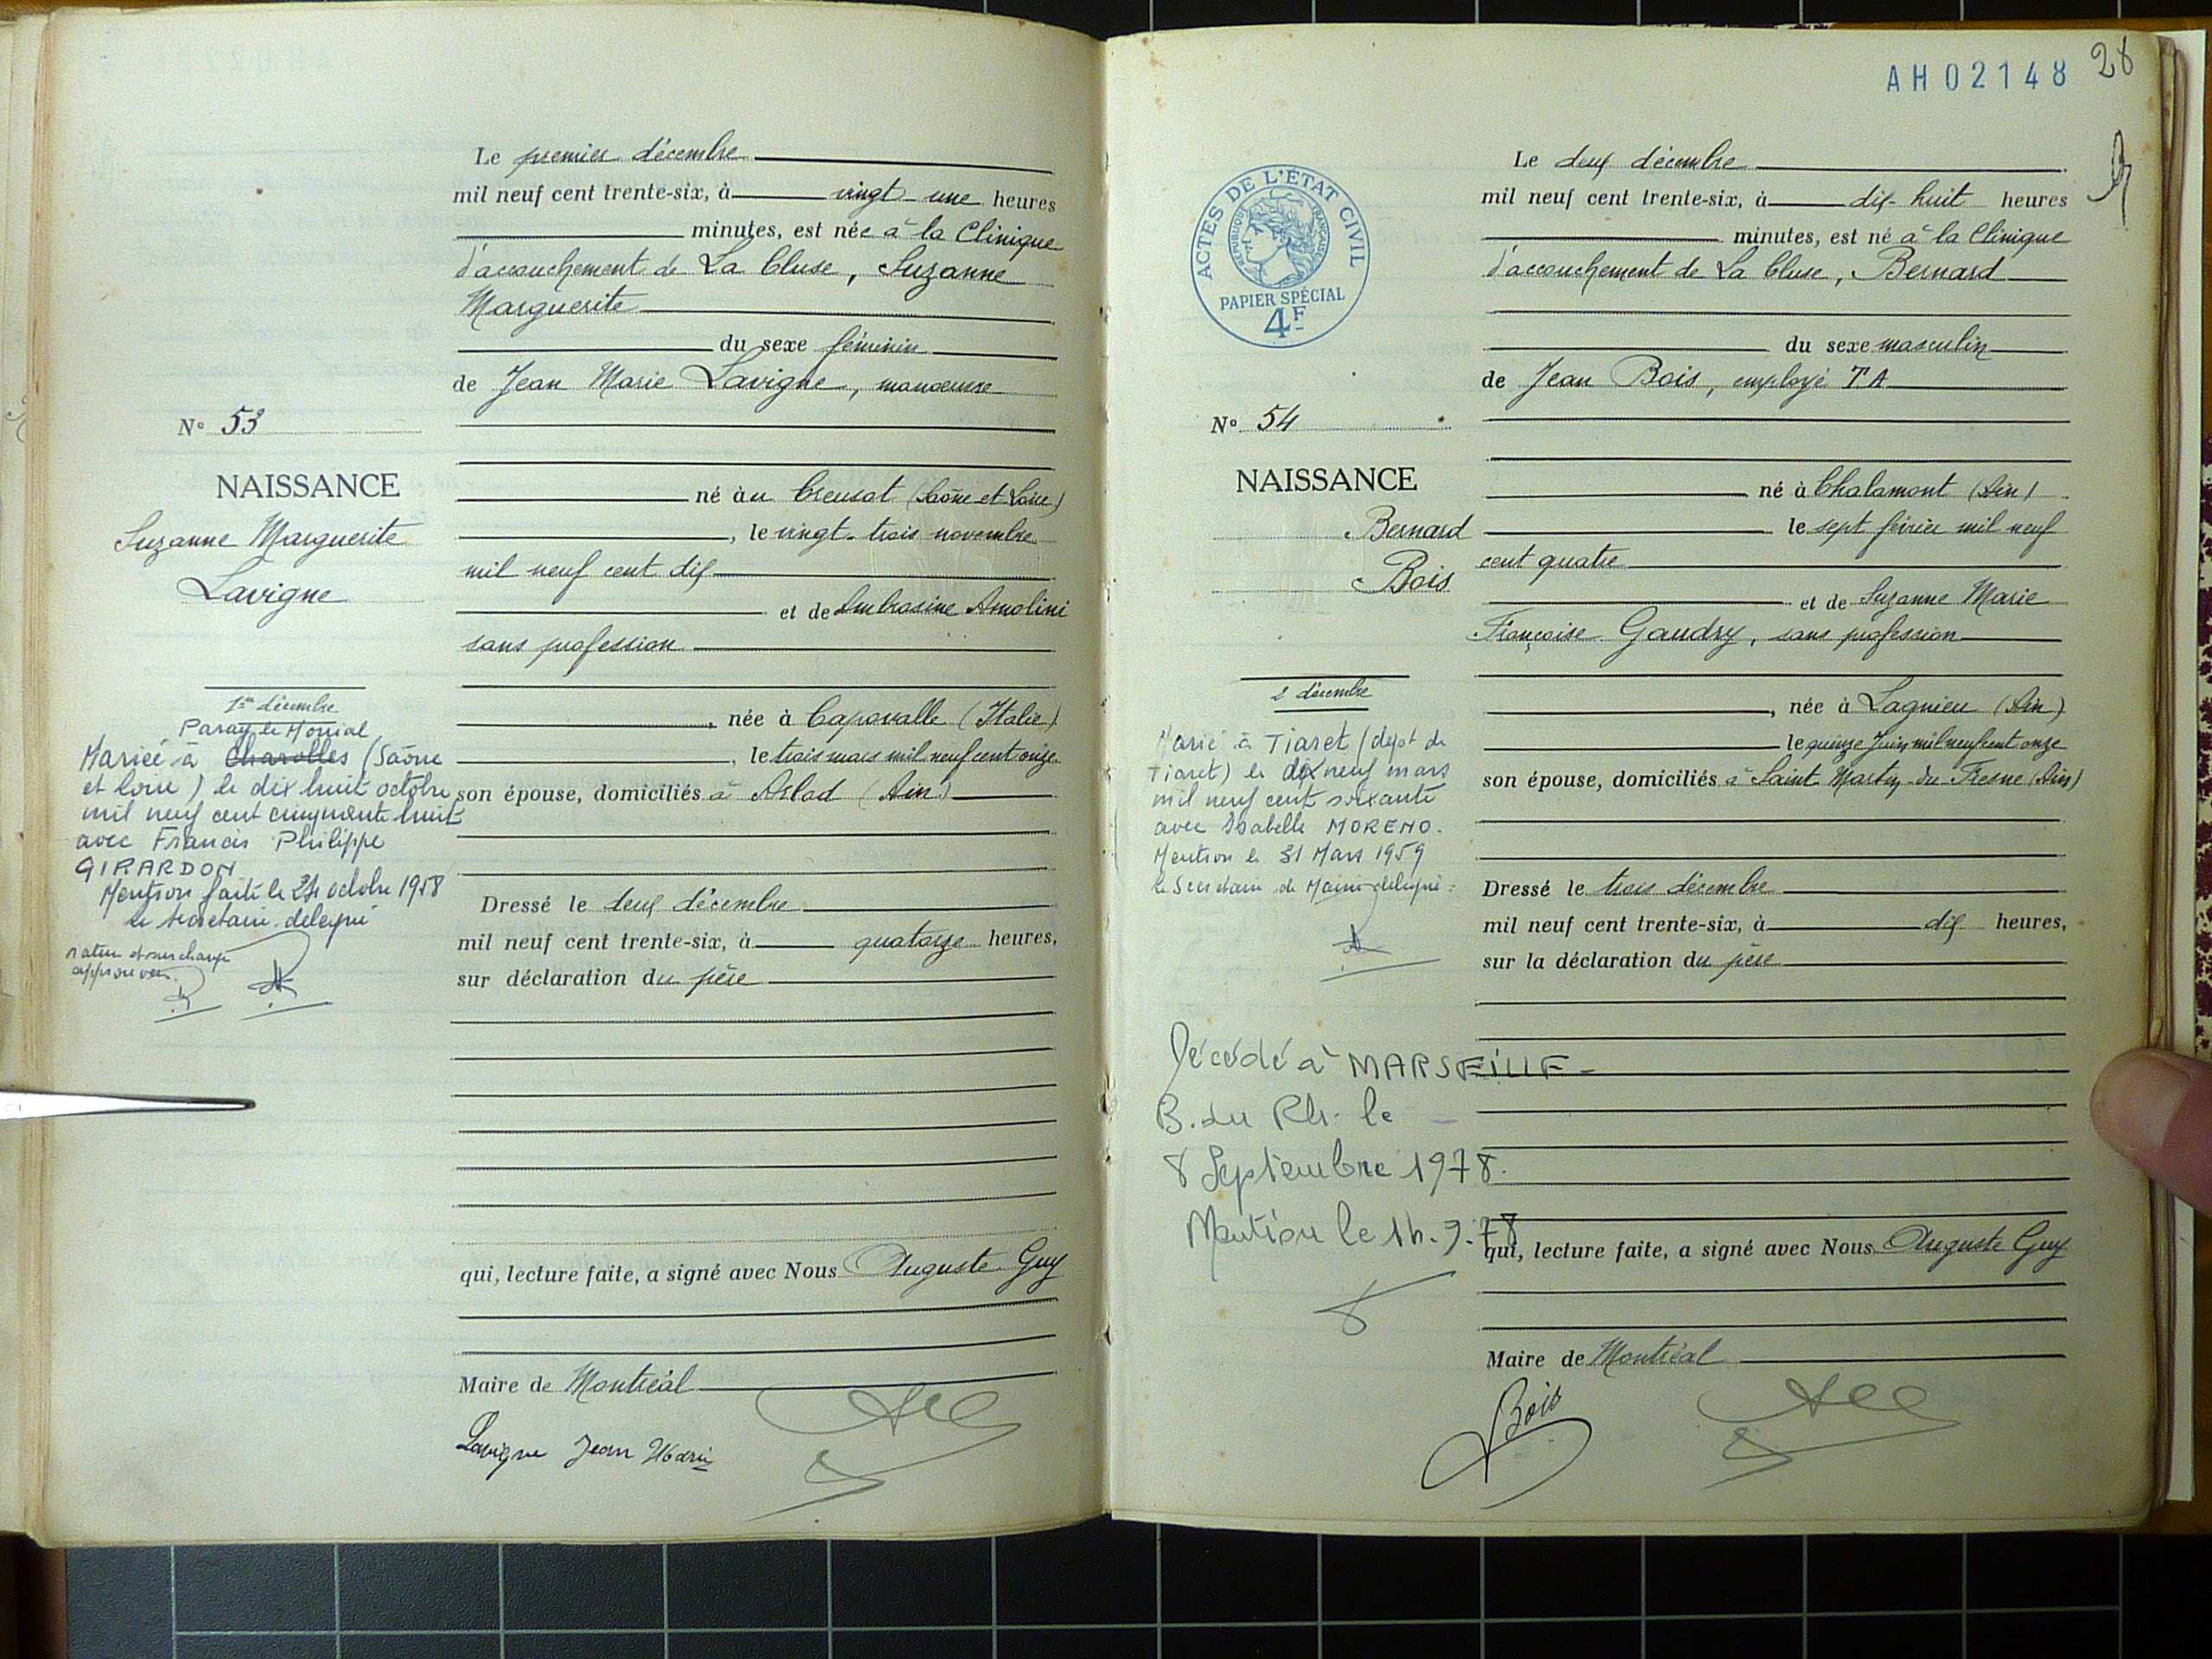 Le premier décembre
mil neuf cent trente-six, à vingt-une heures
minutes, est née à la Clinique
d'accouchement de La Cluse, Suzanne
Marguerite
du sexe féminin
de Jean Marie Lavigne, manoeuvre
N° 53
NAISSANCE
Suzanne Marguerite
Lavigne
né au Creusot (Saône et Loire)
, le vingt-trois novembre
mil neuf cent dix
et de Ambrosine Amolini
sans profession
, née à Capovalle (Italie)
, le trois mars mil neuf cent onze
son épouse, domiciliés à Arlod (Ain)
1er décembre
Paray le Monial
Mariée à Charolles (Saône
et Loire) le dix huit octobre
mil neuf cent cinquante huit
avec Francis Philippe
GIRARDON
Mention faite le 24 octobre 1958
le secrétaire délégué
rature et surcharge
approuvées
Dressé le deux décembre
mil neuf cent trente-six, à quatorze heures,
sur déclaration du père
qui, lecture faite, a signé avec Nous Auguste Guy
Maire de Montréal
Lavigne Jean Marie
AH02148 28
ACTES DE L'ÉTAT CIVIL
RÉPUBLIQUE FRANÇAISE
PAPIER SPÉCIAL
4F
Le deux décembre
mil neuf cent trente-six, à dix-huit heures
minutes, est né à la Clinique
d'accouchement de La Cluse, Bernard
du sexe masculin
de Jean Bois, employé TA
N° 54
NAISSANCE
Bernard
Bois
né à Chalamont (Ain)
le sept février mil neuf
cent quatre
et de Suzanne Marie
Françoise Gaudry, sans profession
, née à Lagnieu (Ain)
le quinze Juin mil neuf cent onze
son épouse, domiciliés à Saint Martin du Fresne (Ain)
2 décembre
Marié à Tiaret (dépt de
Tiaret) le dix neuf mars
mil neuf cent soixante
avec Isabelle MORENO.
Mention le 31 Mars 1959
le Secrétaire de Mairie délégué:
Dressé le trois décembre
mil neuf cent trente-six, à dix heures,
sur la déclaration du père
Décédé à MARSEILLE-
B. du Rh. le
8 Septembre 1978.
Mention le 14.9.78
qui, lecture faite, a signé avec Nous Auguste Guy
Maire de Montréal
Bois